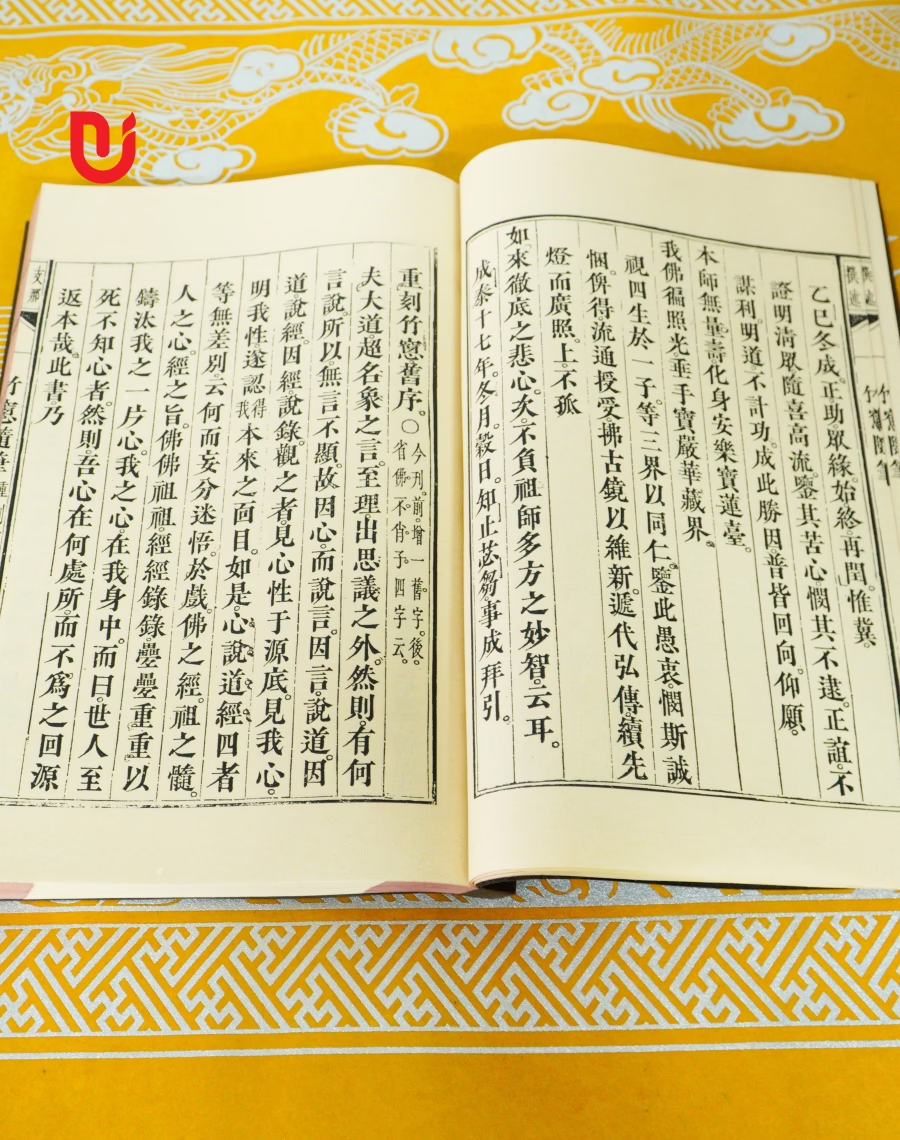 乙巳冬成。正助。眾緣。始終。再閏。惟冀。
證明清眾隨喜高流。鑒其苦心。憫其不逮。正誼。不
謀利。明道。不計功。成此勝因。普皆回向。仰願。
本師無量壽化身安樂寶蓮臺。
我佛徧照光垂手寶嚴華藏界。
視四生於一子。等三界以同仁。鑒此愚衷。憫斯誠
悃。俾得流通授受。拂古鏡以維新。遞代弘傳。續先
燈而廣照。上。不孤
如來徹底之悲心。次。不負祖師多方之妙智。云耳。
成泰十七年。冬月。穀日。知止苾芻。事成拜引。
重刻竹窻舊序。〇今刊。前。增一舊字。後。
省佛。不肖子。四字云。
夫大道超名象之言。至理出思議之外。然則有何
言說。所以無言不顯。故因心。而說言。因言。說道。因
道說經。因經說錄。觀之者。見心性于源底。見我心。
明我性。遂認得我本來之面目。如是。心說道經四者
等無差別。云何而妄分迷悟。於戲。佛之經。祖之髓。
人之心。經之旨。佛佛祖祖。經經錄錄。疊疊重重。以
鑄汰我之一片心。我之心。在我身中。而曰。世人至
死不知心者。然則。吾心在何處所。而不爲之回源
返本哉。此書乃
支那